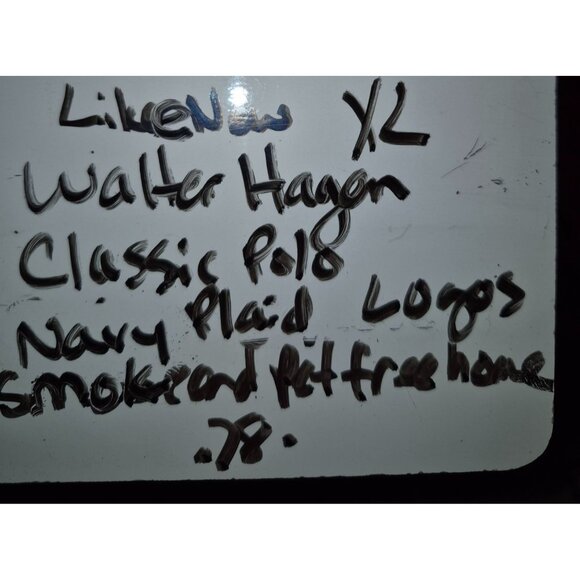 Like New XL
Walter Hagen
Classic Polo
Navy Plaid Logos
Smoke and Pet free home
.78.